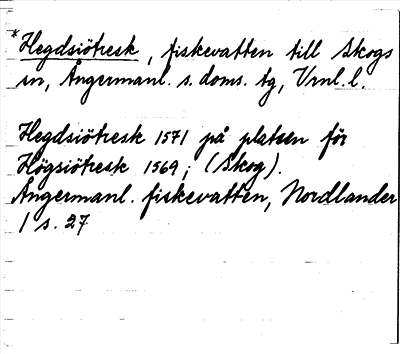 *Hegdsiötresk, fiskevatten till Skogs
sn, Ångermanl. s. doms. tg, Vrnl. l.
Hegdsiötresk 1571 på platsen för
Högsiötresk 1569; (Skog).
Ångermanl. fiskevatten, Nordlander
1 s. 27